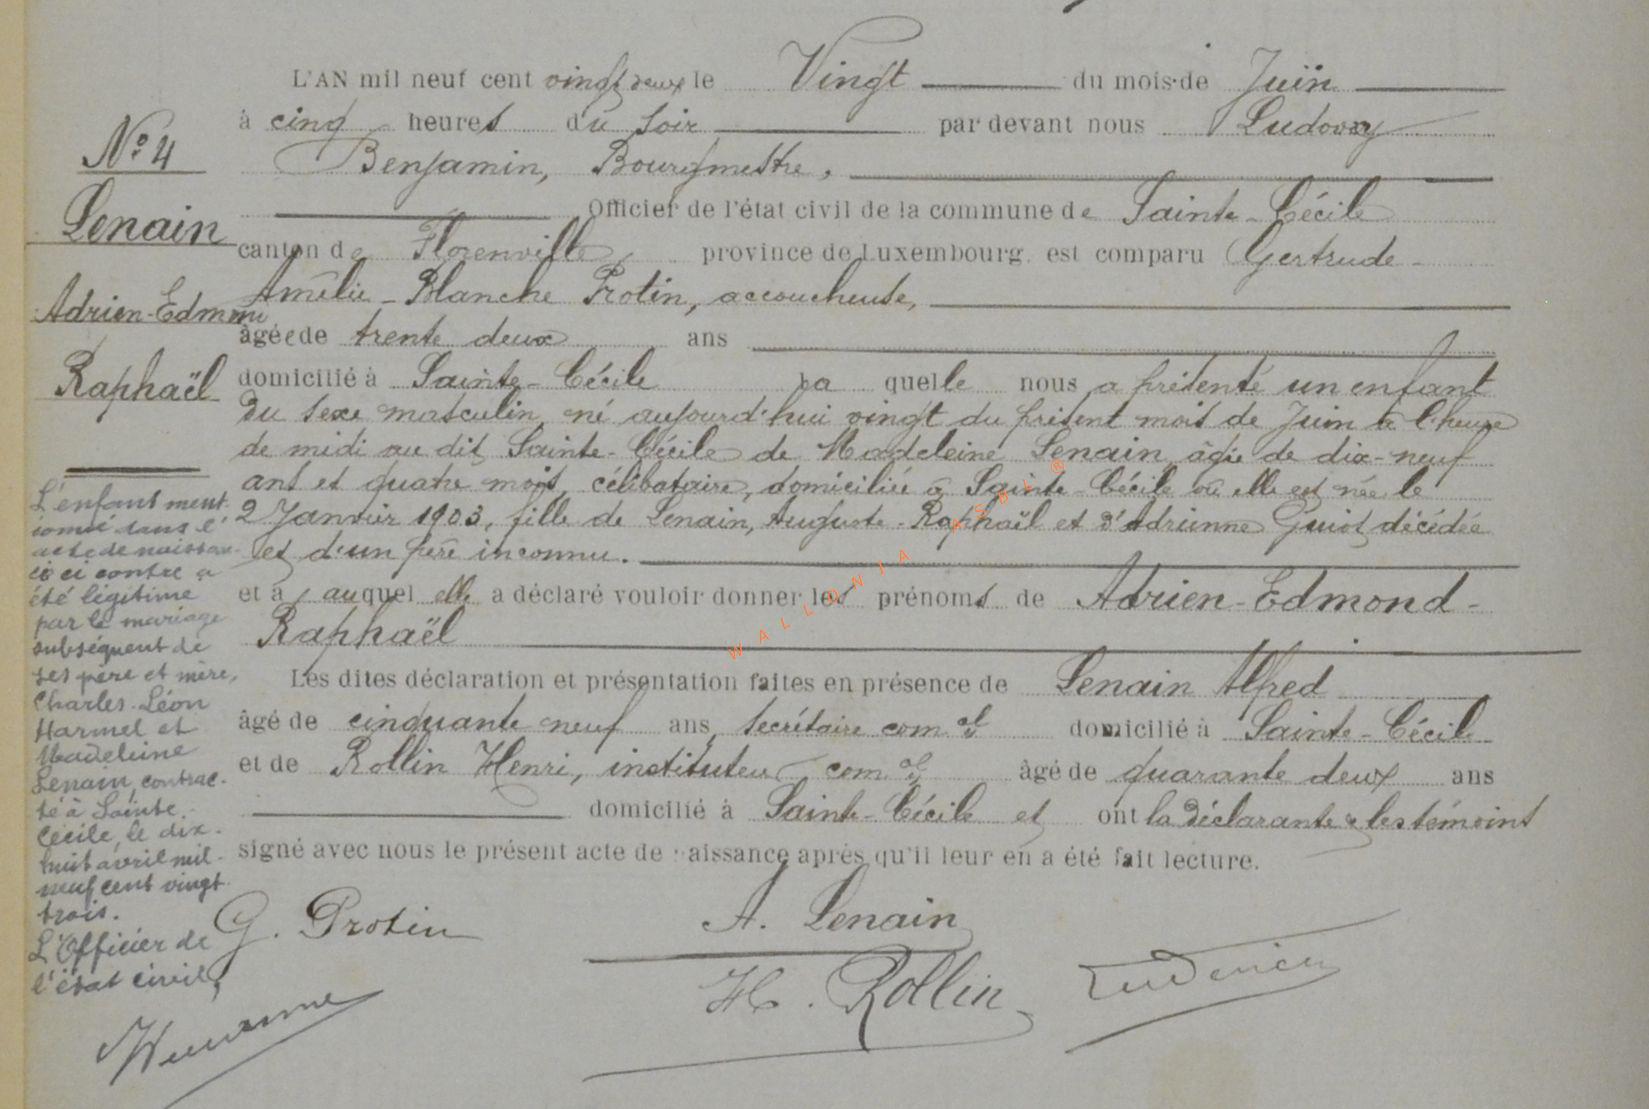 L'AN mil neuf cent vingt deux le Vingt du mois de Juin
à cinq heures du soir par devant nous Ludovicy
Benjamin, Bourgmestre,
Officier de l'état civil de la commune de Sainte-Cécile
canton de Florenville, province de Luxembourg. est comparu Gertrude-
Amélie-Blanche Protin, accoucheuse,
âgée de trente deux ans
domicilié à Sainte-Cécile La quelle nous a présenté un enfant
du sexe masculin, né aujourd'hui vingt du présent mois de Juin à l'heure
de midi au dit Sainte-Cécile de Madeleine Lenain, âgée de dix-neuf
ans et quatre mois, célibataire, domiciliée à Sainte-Cécile où elle est née le
2 Janvier 1903, fille de Lenain, Auguste-Raphaël et d'Adrienne Guiot décédée
et d'un père inconnu.
et à / auquel elle a déclaré vouloir donner les prénoms de Adrien-Edmond-
Raphaël
Les dites déclaration et présentation faites en présence de Lenain Alfred
âgé de cinquante neuf ans, secrétaire com.al domicilié à Sainte-Cécile
et de Rollin Henri, instituteur com.al âgé de quarante deux ans
domicilié à Sainte-Cécile et ont la déclarante & les témoins
signé avec nous le présent acte de naissance après qu'il leur en a été fait lecture.
G. Protin
A. Lenain
H. Rollin
No 4
Lenain
Adrien-Edmond
Raphaël
L'enfant ment-
ionné dans l'
acte de naissan-
ce ci contre a
été légitimé
par le mariage
subséquent de
ses père et mère,
Charles-Léon
Harmel et
Madeleine
Lenain, contrac-
té à Sainte-
Cécile, le dix-
huit avril mil-
neuf cent vingt
trois.
L'Officier de
l'état civil,
WALLONIA ASBL ®